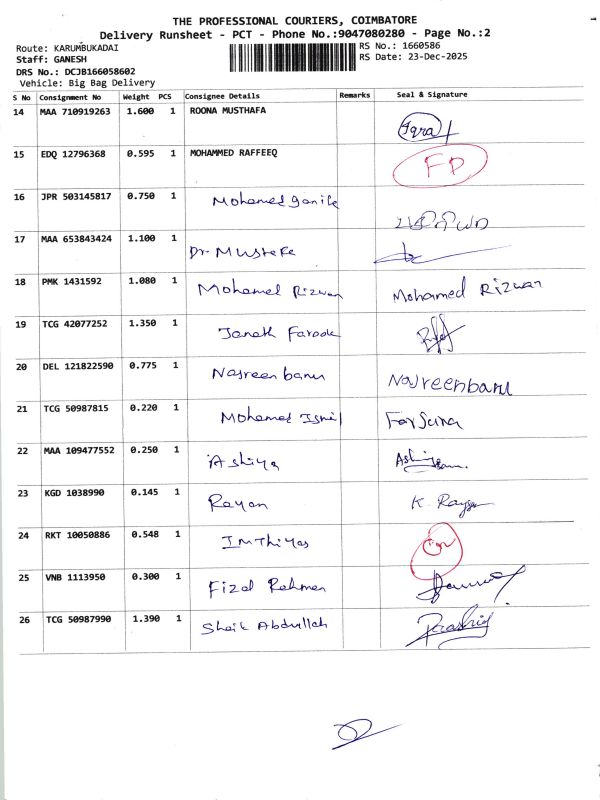 THE PROFESSIONAL COURIERS, COIMBATORE
Delivery Runsheet - PCT - Phone No.:9047080280 - Page No.:2
Route: KARUMBUKADAI RS No.: 1660586
Staff: GANESH RS Date: 23-Dec-2025
DRS No.: DCJB166058602
Vehicle: Big Bag Delivery
S No Consignment No Weight PCS Consignee Details Remarks Seal & Signature
14 MAA 710919263 1.600 1 ROONA MUSTHAFA Iqra
15 EDQ 12796368 0.595 1 MOHAMMED RAFFEEQ FD
16 JPR 503145817 0.750 1 Mohamed
17 MAA 653843424 1.100 1 Dr Mustefe
18 PMK 1431592 1.080 1 Mohamed Rizwan Mohamed Rizwan
19 TCG 42077252 1.350 1 Janath Farook
20 DEL 121822590 0.775 1 Nasreen banu Nasreenbanu
21 TCG 50987815 0.220 1 Mohamed Farsuna
22 MAA 109477552 0.250 1 Ashiya
23 KGD 1038990 0.145 1 Rayan K. Rayan
24 RKT 10050886 0.548 1 Imthiyas
25 VNB 1113950 0.300 1 Fizal Rahman
26 TCG 50987990 1.390 1 Sheik Abdullah